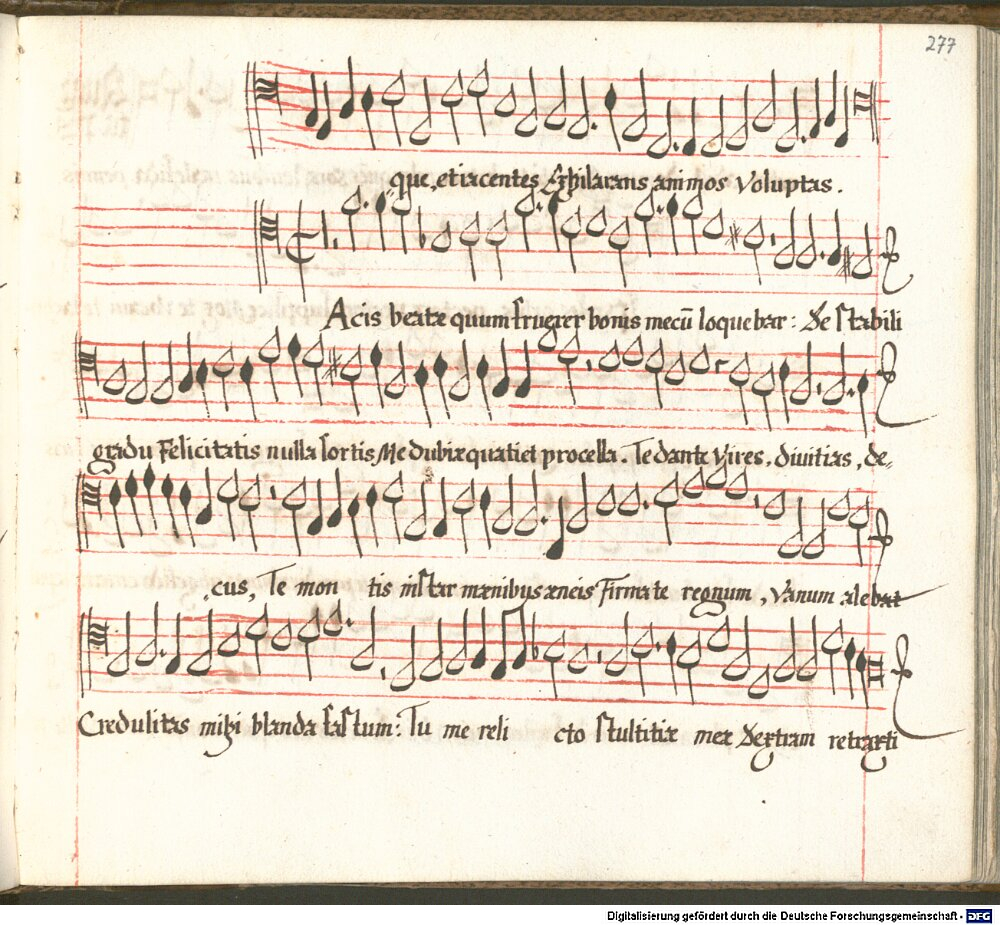 277
que, et iacentes Exhilarans animos voluptas.
Acis beatæ quum fruerer bonis mecū loquebar: De stabili
gradu Felicitatis nulla sortis Me dubiæ quatiet procella. Te dante vires, divitias, de-
cus, Te mon tis instar mænibus æneis Firmate regnum, vanum alebat
Credulitas mihi blanda fastum: Tu me reli cto stultitiæ meæ Dextram retraxti
Digitalisierung gefördert durch die Deutsche Forschungsgemeinschaft - DFG